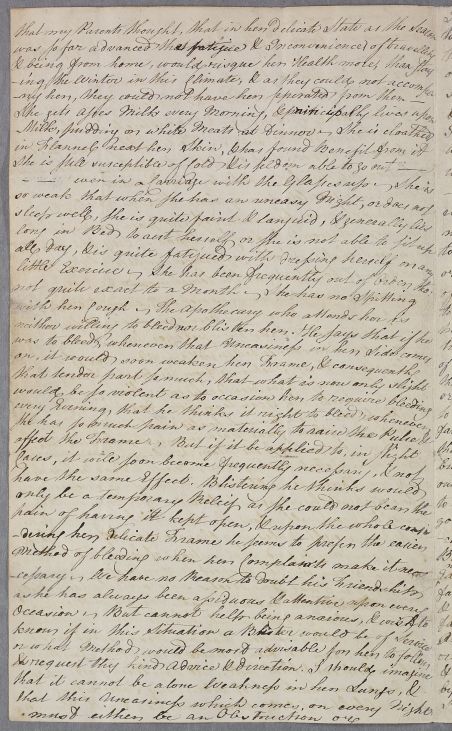 that my Parents thought, that in her delicate State as the Season
was so far advanced the fatigue & Inconvenience of travelling
& being from home, would risque her Health more, than stay
ing the Winter in this Climate, & as they could not accompa
ny her, they could not have her seperated from them
She gets Asses Milk every Morning, & principally lives upon
Milk, pudding or white Meats at Dinner. She is cloathed
in Flannel next her Skin, & has found Benefit from it
She is still susceptible of Cold & is seldom able to go out
even in a Carriage with the Glasses up. She is
so weak that when she has an uneasy Night, or does not
sleep well, she is quite faint & languid, & generally lies
long in Bed to rest herself or she is not able to sit up
all day, & is quite fatigued with dressing herself or any
little Exercise. She has been frequently out of order, tho
not quite exact to a Month. She has no Spitting
with her Cough. The Apothecary who attends her is
neither willing to bleed nor blister her. He says that if he
was to bleed, whenever that Uneasiness in her Side comes
on, it would soon weaken her Frame, & consequently
that tender part so much, that what is now only slight
would be so violent as to occasion her to require bleeding
every Evening, that he thinks it right to bleed whenever
she has so much pain as materially to raise the Pulse &
affect the Frame. But if it be applied to, in slight
Cases, it will soon become frequently necessary, & not
have the same Effect. Blistering he thinks would
only be a temporary Relief, as she could not bear the
pain of having it kept open, & upon the whole consi
dering her delicate Frame he seems to prefer the easier
Method of bleeding when her Complaints make it ne
cessary. We have no Reason to doubt his Friendship
as he has always been assiduous & attentive upon every
Occasion. But cannot help being anxious, & wish to
know if in this Situation a Blister would be of Service
or what Method, would be most advisable for her to follow,
& request thy kind Advice & Direction. I should imagine
that it cannot be alone Weakness in her Lungs, &
that this Uneasiness which comes on every Night
must either be an Obstruction or